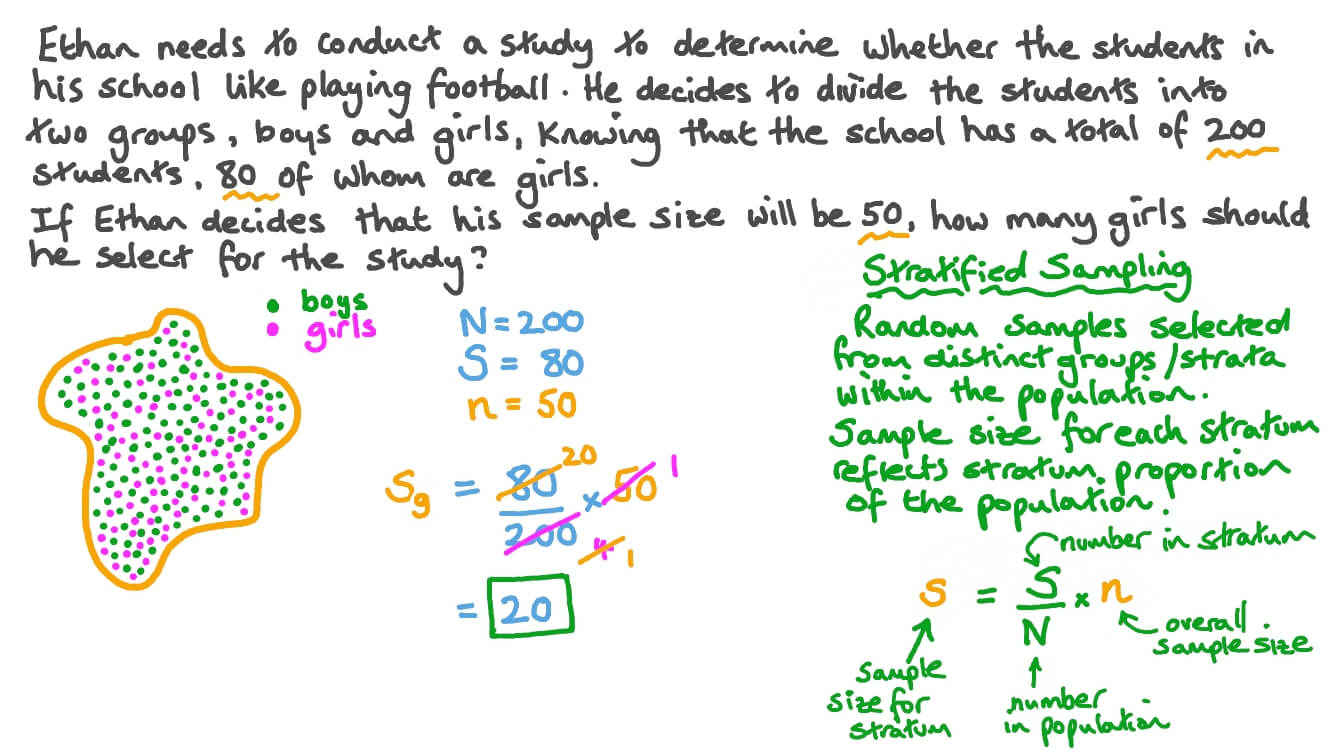 Ethan needs to conduct a study to determine whether the students in
his school like playing football. He decides to divide the students into
two groups, boys and girls, knowing that the school has a total of 200
students, 80 of whom are girls.
If Ethan decides that his sample size will be 50, how many girls should
he select for the study?
boys
girls
N = 200
S = 80
n = 50
Sg = 80/200 × 50
20
1
4
1
= 20
Stratified Sampling
Random samples selected
from distinct groups/strata
within the population.
Sample size for each stratum
reflects stratum proportion
of the population.
number in stratum
s = S/N × n
overall
sample size
sample
size for
stratum
number
in population